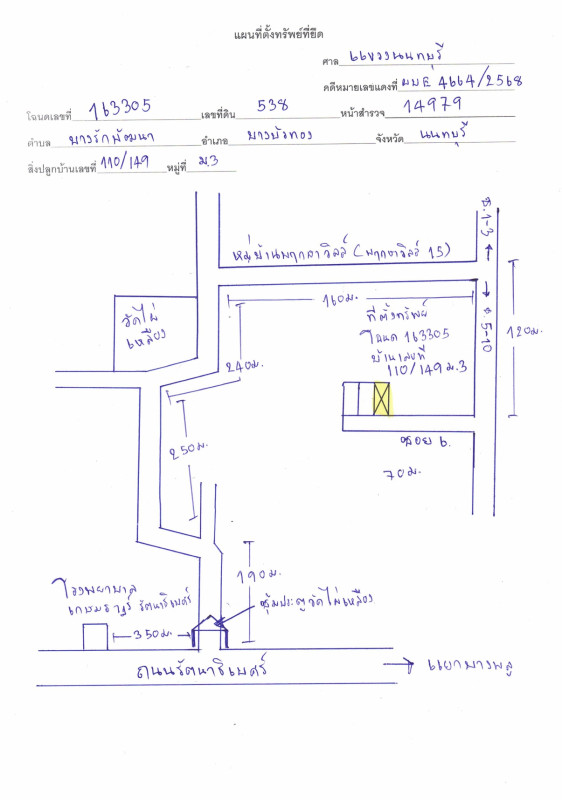 แผนที่ตั้งทรัพย์ที่ยึด
ศาล แขวงนนทบุรี
คดีหมายเลขแดงที่ ผบE 4664/2568
โฉนดเลขที่ 163305 เลขที่ดิน 538 หน้าสำรวจ 14979
ตำบล บางรักพัฒนา อำเภอ บางบัวทอง จังหวัด นนทบุรี
สิ่งปลูกบ้านเลขที่ 110/149 หมู่ที่ ม.3
ซ.1-3
หมู่บ้านพฤกษาวิลล์ (พฤกษาวิลล์ 15)
160ม.
ซ.5-10
120ม.
วัดไผ่
เหลือง
ที่ตั้งทรัพย์
โฉนด 163305
บ้านเลขที่
110/149 ม.3
240ม.
250ม.
ซอย 6.
70ม.
190ม.
โรงพยาบาล
เกษมราษฎร์ รัตนาธิเบศร์
ซุ้มประตูวัดไผ่เหลือง
350ม.
ถนนรัตนาธิเบศร์
แยกบางพลู